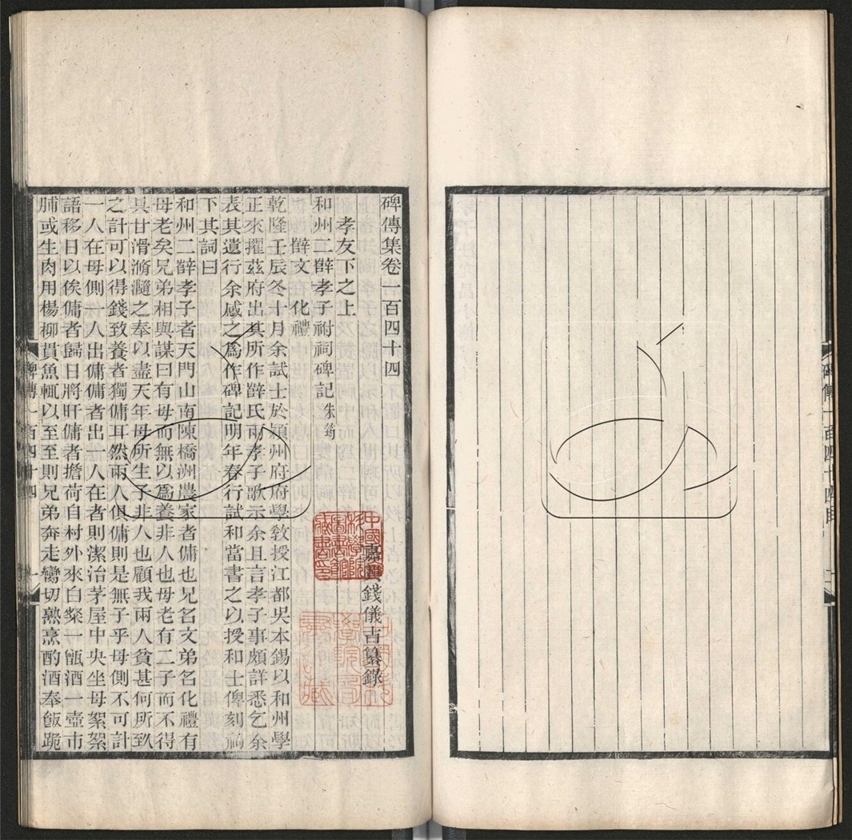 碑傳集卷一百四十四
嘉興錢儀吉纂錄
孝友下之上
和州二薛孝子祔祠碑記 朱筠
薛文 化禮
乾隆壬辰冬十月余試士於潁州府府學敎授江都吳本錫以和州學
正來攝茲府出其所作薛氏兩孝子歌示余且言孝子事頗詳悉乞余
表其遺行余感之爲作碑記明年春行試和當書之以授和士俾刻祠
下其詞曰
和州二薛孝子者天門山南陳橋洲農家者傭也兄名文弟名化禮有
母老矣兄弟相與謀曰有母而無以爲養非人也母老有二子而不得
具甘滑滫瀡之奉以盡天年母所生子非人也顧我兩人貧甚何所致
之計可以得錢致養者獨傭耳然兩人俱傭則是無子乎母側不可計
一人在母側一人出傭傭者出一人在者則潔治茅屋中央坐母絮絮
語移日以俟傭者歸日將旰傭者擔荷自村外來白粲一甑酒一壺市
脯或生肉用楊柳貫魚輒以至至則兄弟奔走臠切熟烹酌酒奉飯跪
碑傳一百四十四
一